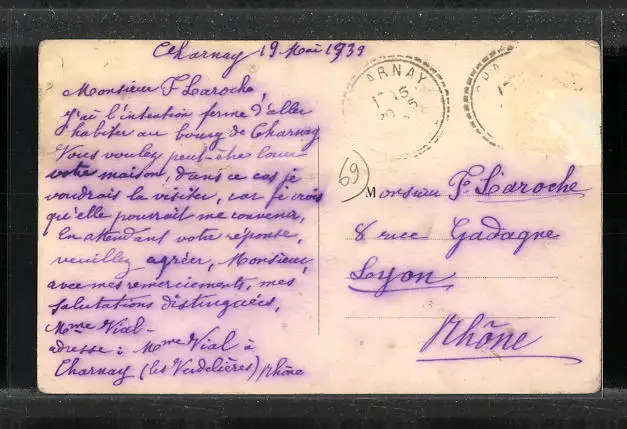 Charnay 19 Mai 1939
Monsieur F Laroche,
J'ai l'intention ferme d'aller
habiter au bourg de Charnay
Vous voulez peut-être louer
votre maison, dans ce cas je
voudrais la visiter, car je crois
qu'elle pourrait me convenir,
En attendant votre réponse,
veuillez agréer, Monsieur,
avec mes remerciements, mes
salutations distinguées,
Mme Vial-
adresse : Mme Vial à
Charnay (les Verdelières) Rhône
ARNAY
69
Monsieur F. Laroche
8 rue Gadagne
Lyon
Rhône